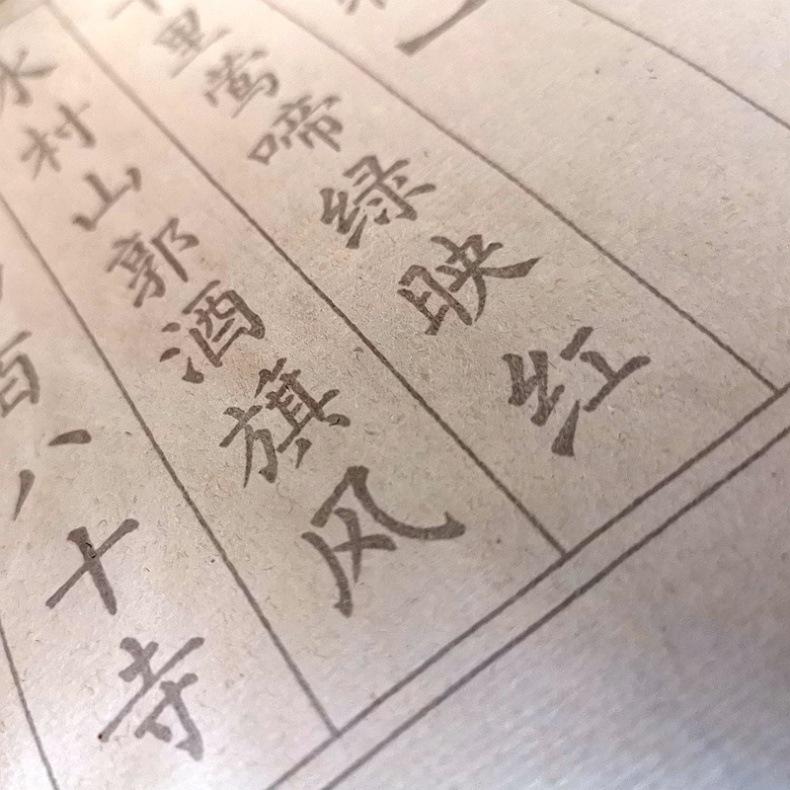 一
里莺啼绿映红
水村山郭酒旗风
百八十寺